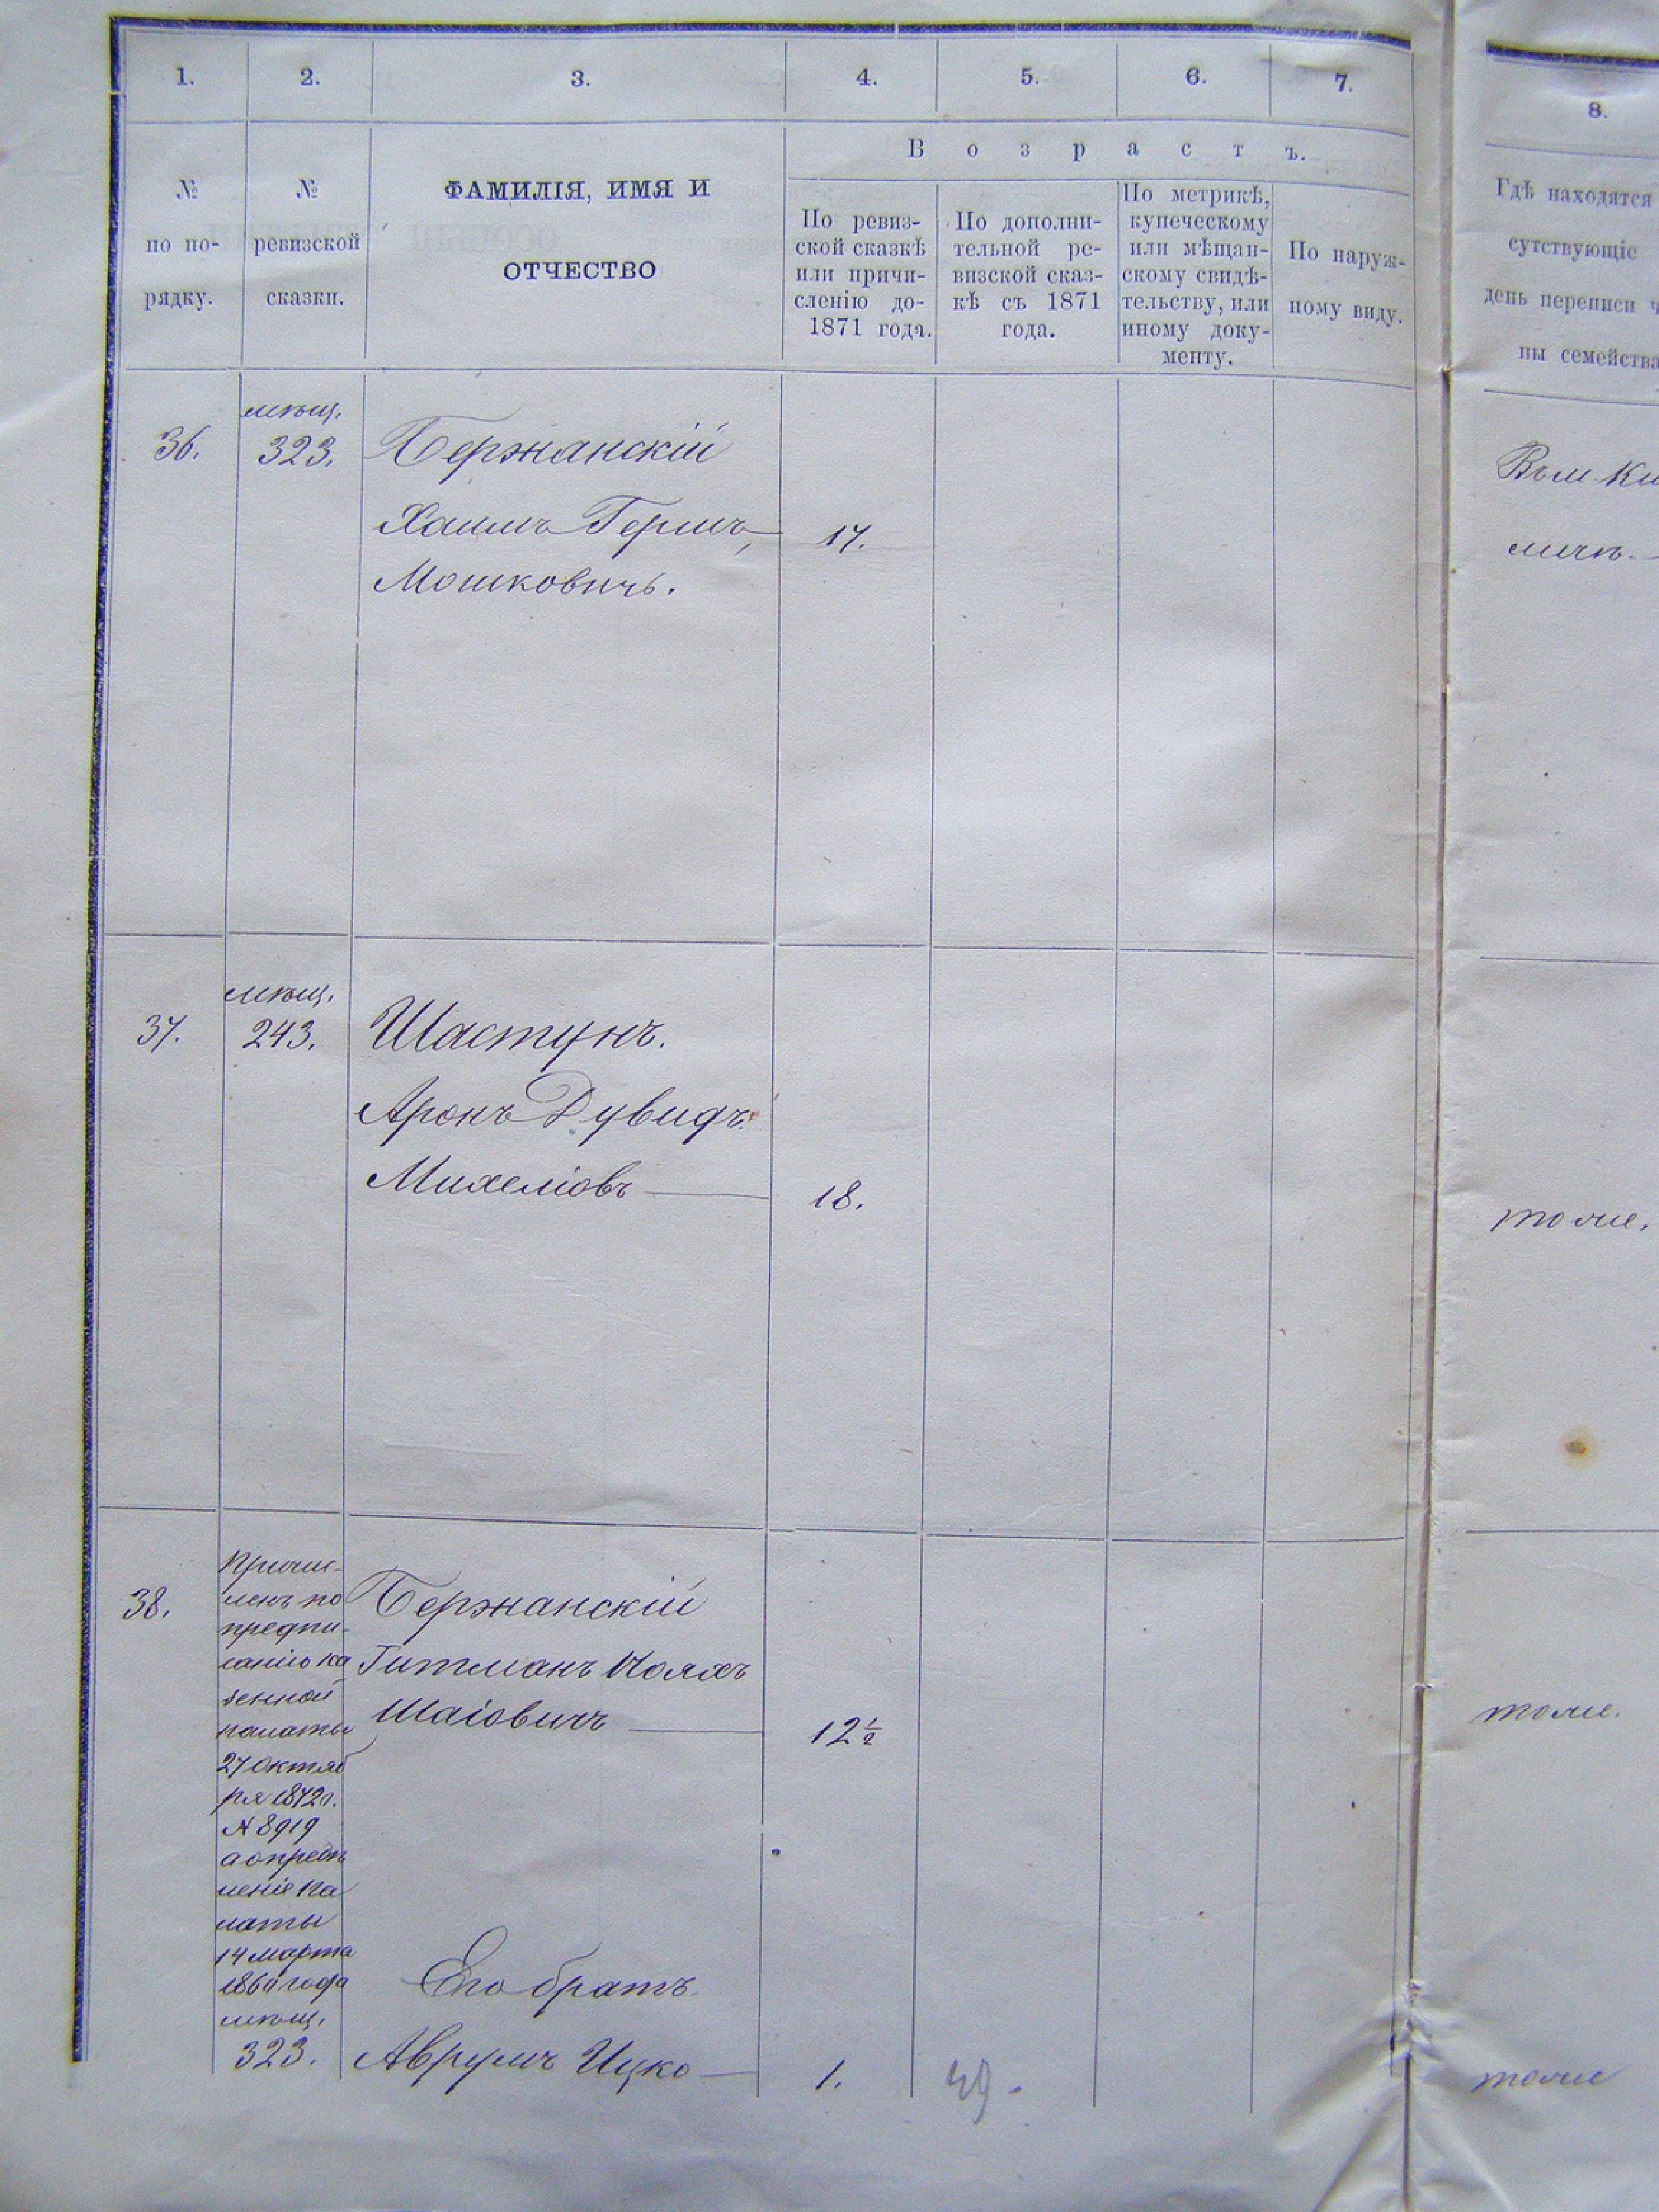 1. 2. 3. 4. 5. 6. 7.
8.
№
по по-
рядку.
№
ревизской
сказки.
ФАМИЛІЯ, ИМЯ И
ОТЧЕСТВО
Возрастъ.
По ревиз-
ской сказкѣ
или причи-
сленію до-
1871 года.
По дополни-
тельной ре-
визской сказ-
кѣ съ 1871
года.
По метрикѣ,
купеческому
или мѣщан-
скому свидѣ-
тельству, или
иному доку-
менту.
По наруж-
ному виду.
Гдѣ находятся
сутствующіе
день переписи ч
ны семейства
36.
мѣщ.
323.
Бержанскій
Хаимъ Гершъ
Мошковичь.
17.
37.
мѣщ.
243.
Шастунъ.
Аронъ Дувидъ
Михеліовъ
18.
тоже.
38.
Причис-
ленъ по
предпи-
санію ка
зенной
палаты
27 Октяб
ря 1872 г.
№ 8919
а опредѣ
леніе Па
латы
14 марта
года
мѣщ.
323.
Бержанскій
Гитманъ
Шаіовичъ
12½
тоже.
Его братъ
Аврумъ Ицко
1.
49.
тоже